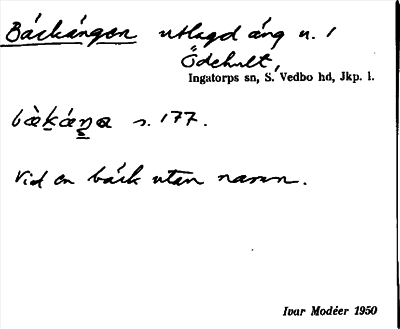 Bäckängen utlagd äng u. 1
Ödehult,
Ingatorps sn, S. Vedbo hd, Jkp. l.
s. 177.
Vid en bäck utan namn.
Ivar Modéer 1950